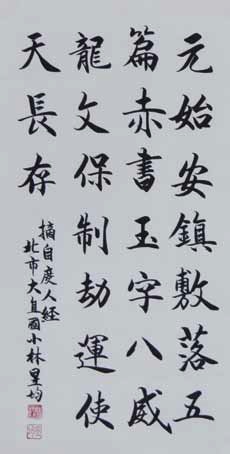 元始安鎮敷落五
篇赤書玉字八威
龍文保制劫運使
天長存
摘自度人經
北市大直國小林星均